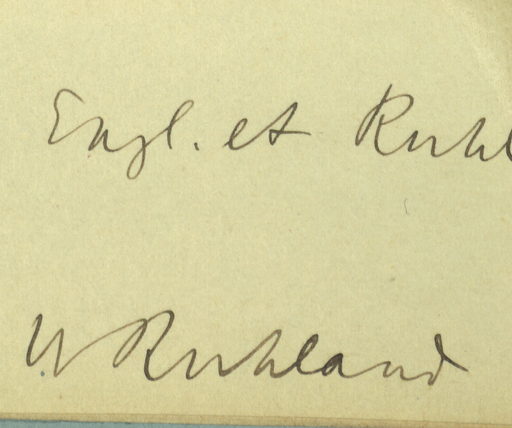 Engl. et Ruhl
W Ruhland